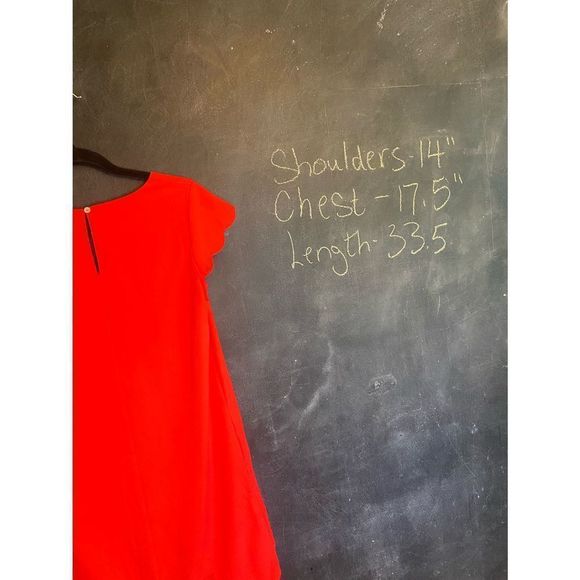 Shoulders-14"
Chest-17.5"
Length-33.5